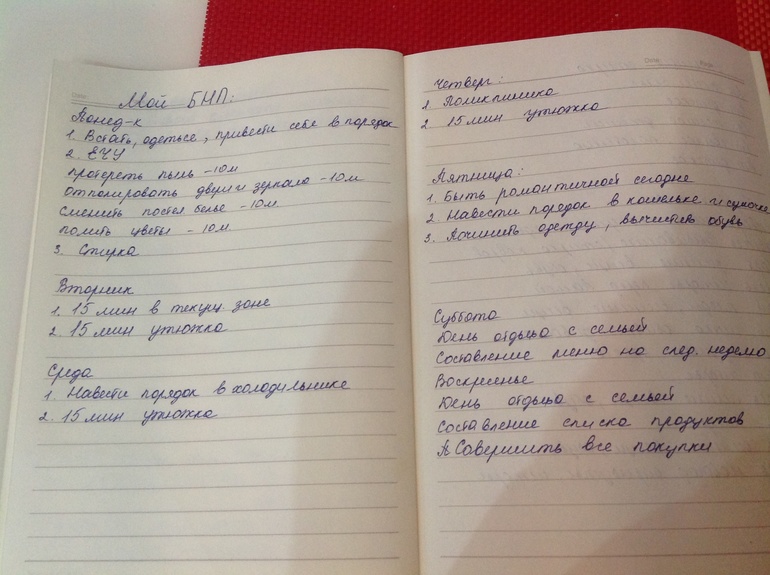 Мой БНП:
Понед-к
1. Встать, одеться, привести себя в порядок
2. ЕЧУ
протереть пыль -10м
отполировать двери и зеркала -10м
сменить постел белье -10м.
полить цветы - 10м.
3. Стирка
Вторник
1. 15 мин в текущ зоне
2. 15 мин утюжка
Среда
1. Навести порядок в холодильнике
2. 15 мин утюжка
Четверг:
1. Поликлиника
2 15 мин утюжка
Пятница:
1. Быть романтичной сегодня
2. Навести порядок в кошельке и сумочке
3. Починить одежду, вычистить обувь
Суббота
День отдыха с семьей
Составление меню на след. неделю
Воскресенье
День отдыха с семьей
Составление списка продуктов
Совершить все покупки